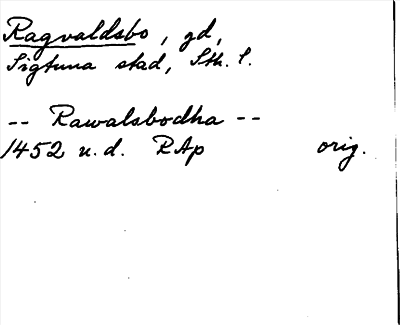 Ragvaldsbo, gd,
Sigtuna stad, Sth. l.
-- Rawalsbodha --
1452 u. d. RAp orig.